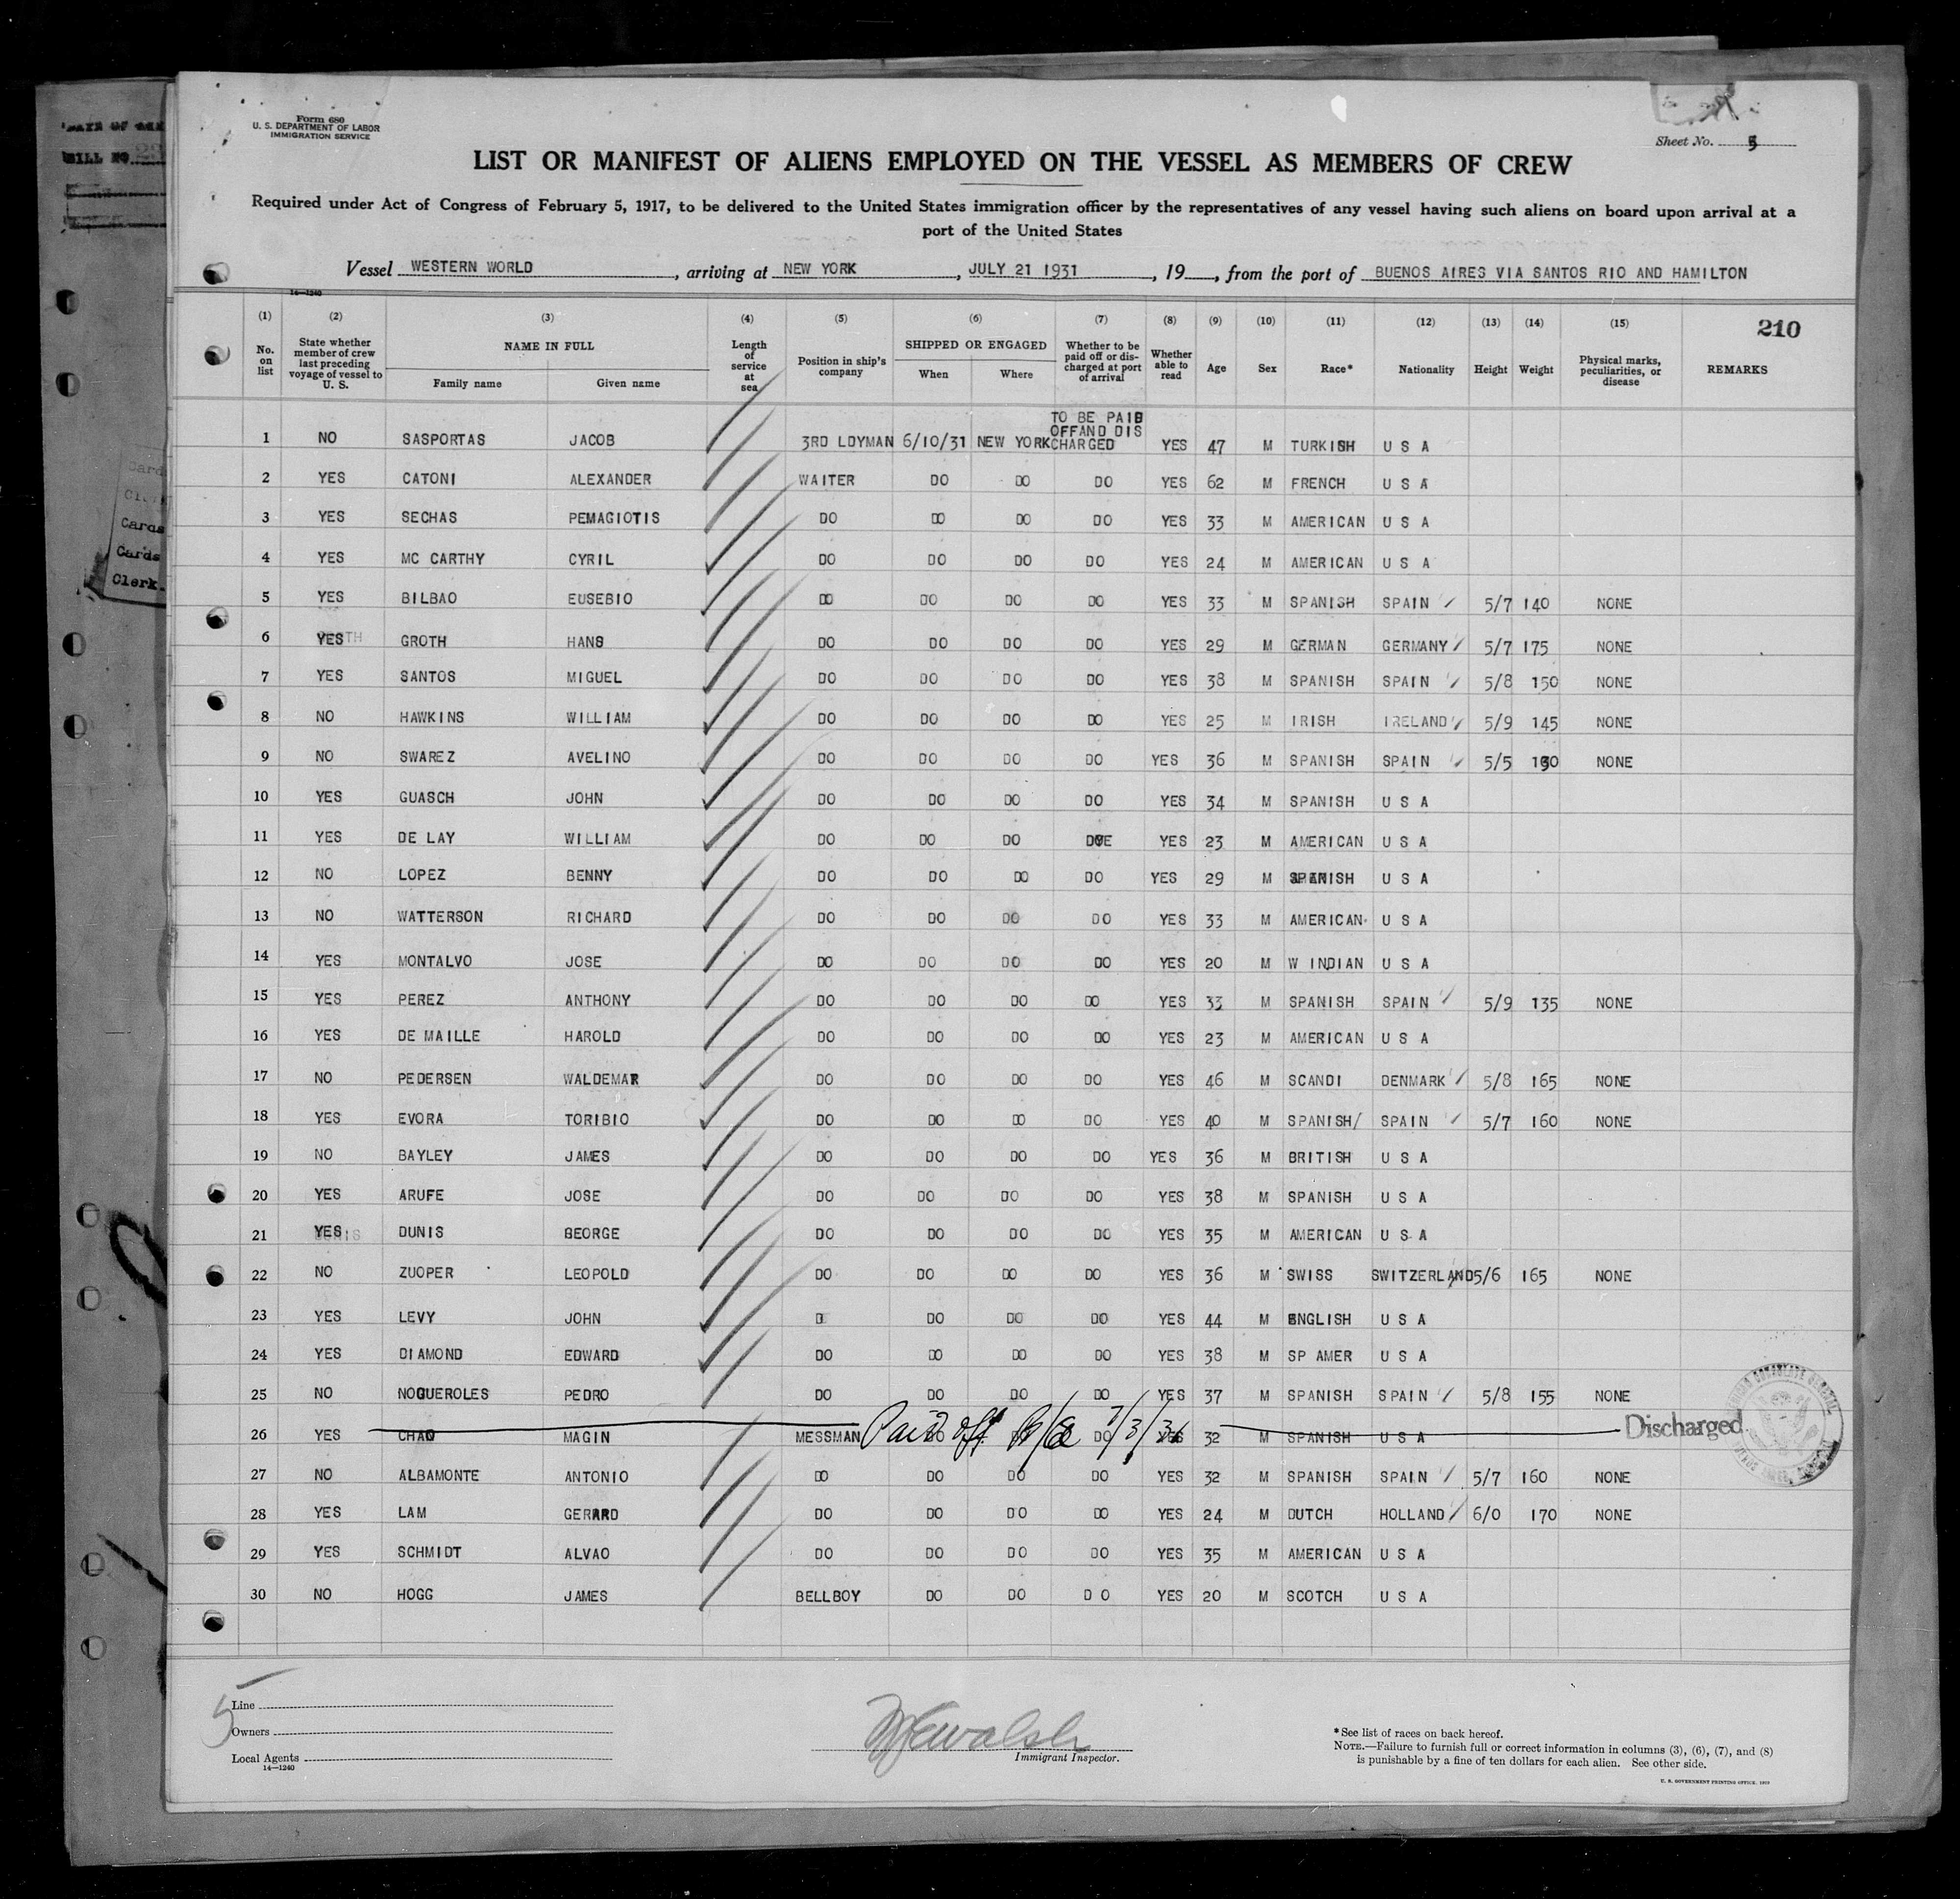 Form 680
U. S. DEPARTMENT OF LABOR
IMMIGRATION SERVICE
Sheet No. 5
LIST OR MANIFEST OF ALIENS EMPLOYED ON THE VESSEL AS MEMBERS OF CREW
Required under Act of Congress of February 5, 1917, to be delivered to the United States immigration officer by the representatives of any vessel having such aliens on board upon arrival at a
port of the United States
Vessel WESTERN WORLD, arriving at NEW YORK, JULY 21 1931, 19, from the port of BUENOS AIRES VIA SANTOS RIO AND HAMILTON
14—1240
210
(1) No. on list (2) State whether member of crew last preceding voyage of vessel to U. S. (3) NAME IN FULL Family name Given name (4) Length of service at sea (5) Position in ship's company (6) SHIPPED OR ENGAGED When Where (7) Whether to be paid off or discharged at port of arrival (8) Whether able to read (9) Age (10) Sex (11) Race* (12) Nationality (13) Height (14) Weight (15) Physical marks, peculiarities, or disease REMARKS
1 NO SASPORTAS JACOB 3RD LDYMAN 6/10/31 NEW YORK TO BE PAID OFFAND DIS CHARGED YES 47 M TURKISH U S A
2 YES CATONI ALEXANDER WAITER DO DO DO YES 62 M FRENCH U S A
3 YES SECHAS PEMAGIOTIS DO DO DO DO YES 33 M AMERICAN U S A
4 YES MC CARTHY CYRIL DO DO DO DO YES 24 M AMERICAN U S A
5 YES BILBAO EUSEBIO DO DO DO DO YES 33 M SPANISH SPAIN 5/7 140 NONE
6 YES GROTH HANS DO DO DO DO YES 29 M GERMAN GERMANY 5/7 175 NONE
7 YES SANTOS MIGUEL DO DO DO DO YES 38 M SPANISH SPAIN 5/8 150 NONE
8 NO HAWKINS WILLIAM DO DO DO DO YES 25 M IRISH IRELAND 5/9 145 NONE
9 NO SWAREZ AVELINO DO DO DO DO YES 36 M SPANISH SPAIN 5/5 130 NONE
10 YES GUASCH JOHN DO DO DO DO YES 34 M SPANISH U S A
11 YES DE LAY WILLIAM DO DO DO DO YES 23 M AMERICAN U S A
12 NO LOPEZ BENNY DO DO DO DO YES 29 M SPANISH U S A
13 NO WATTERSON RICHARD DO DO DO DO YES 33 M AMERICAN U S A
14 YES MONTALVO JOSE DO DO DO DO YES 20 M W INDIAN U S A
15 YES PEREZ ANTHONY DO DO DO DO YES 33 M SPANISH SPAIN 5/9 135 NONE
16 YES DE MAILLE HAROLD DO DO DO DO YES 23 M AMERICAN U S A
17 NO PEDERSEN WALDEMAR DO DO DO DO YES 46 M SCANDI DENMARK 5/8 165 NONE
18 YES EVORA TORIBIO DO DO DO DO YES 40 M SPANISH/ SPAIN 5/7 160 NONE
19 NO BAYLEY JAMES DO DO DO DO YES 36 M BRITISH U S A
20 YES ARUFE JOSE DO DO DO DO YES 38 M SPANISH U S A
21 YES DUNIS BEORGE DO DO DO DO YES 35 M AMERICAN U S A
22 NO ZUOPER LEOPOLD DO DO DO DO YES 36 M SWISS SWITZERLAND 5/6 165 NONE
23 YES LEVY JOHN D DO DO DO YES 44 M ENGLISH U S A
24 YES DIAMOND EDWARD DO DO DO DO YES 38 M SP AMER U S A
25 NO NOGUEROLES PEDRO DO DO DO DO YES 37 M SPANISH SPAIN 5/8 155 NONE
26 YES CHAO MAGIN MESSMAN Paid off DO 32 M SPANISH U S A Discharged
27 NO ALBAMONTE ANTONIO DO DO DO DO YES 32 M SPANISH SPAIN 5/7 160 NONE
28 YES LAM GERARD DO DO DO DO YES 24 M DUTCH HOLLAND 6/0 170 NONE
29 YES SCHMIDT ALVAO DO DO DO DO YES 35 M AMERICAN U S A
30 NO HOGG JAMES BELLBOY DO DO D O YES 20 M SCOTCH U S A
5
Line
Owners
Local Agents
14—1240
Immigrant Inspector.
*See list of races on back hereof.
NOTE.—Failure to furnish full or correct information in columns (3), (6), (7), and (8)
is punishable by a fine of ten dollars for each alien. See other side.
U. S. GOVERNMENT PRINTING OFFICE
Cards
Cards
Clerk.